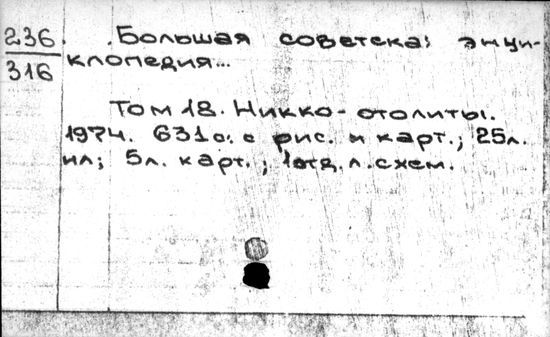 236
316
Большая советска: энци-
клопедия...
Том 18. Никко-отолиты.
1974. 631с. с рис. и карт.; 25л.
ил; 5л. карт.; 1отд.л.схем.